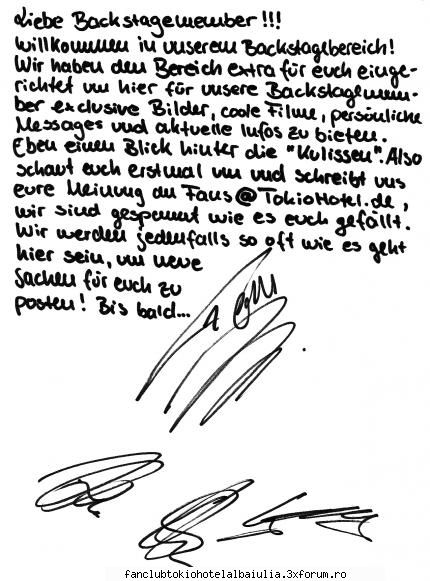 Liebe Backstagemember!!!
willkommen in unserem Backstagebereich!
Wir haben den Bereich extra für euch einge-
richtet um hier für unsere Backstagemem-
ber exclusive Bilder, coole Filme, persönliche
Messages und aktuelle Infos zu bieten.
Eben einen Blick hinter die "Kulissen". Also
schaut euch erstmal um und schreibt uns
eure Meinung an Fans@TokioHotel.de,
wir sind gespannt wie es euch gefällt.
Wir werden jedenfalls so oft wie es geht
hier sein, um neue
Sachen für euch zu
posten! Bis bald...
fanclubtokiohotelalbaiulia.3xforum.ro